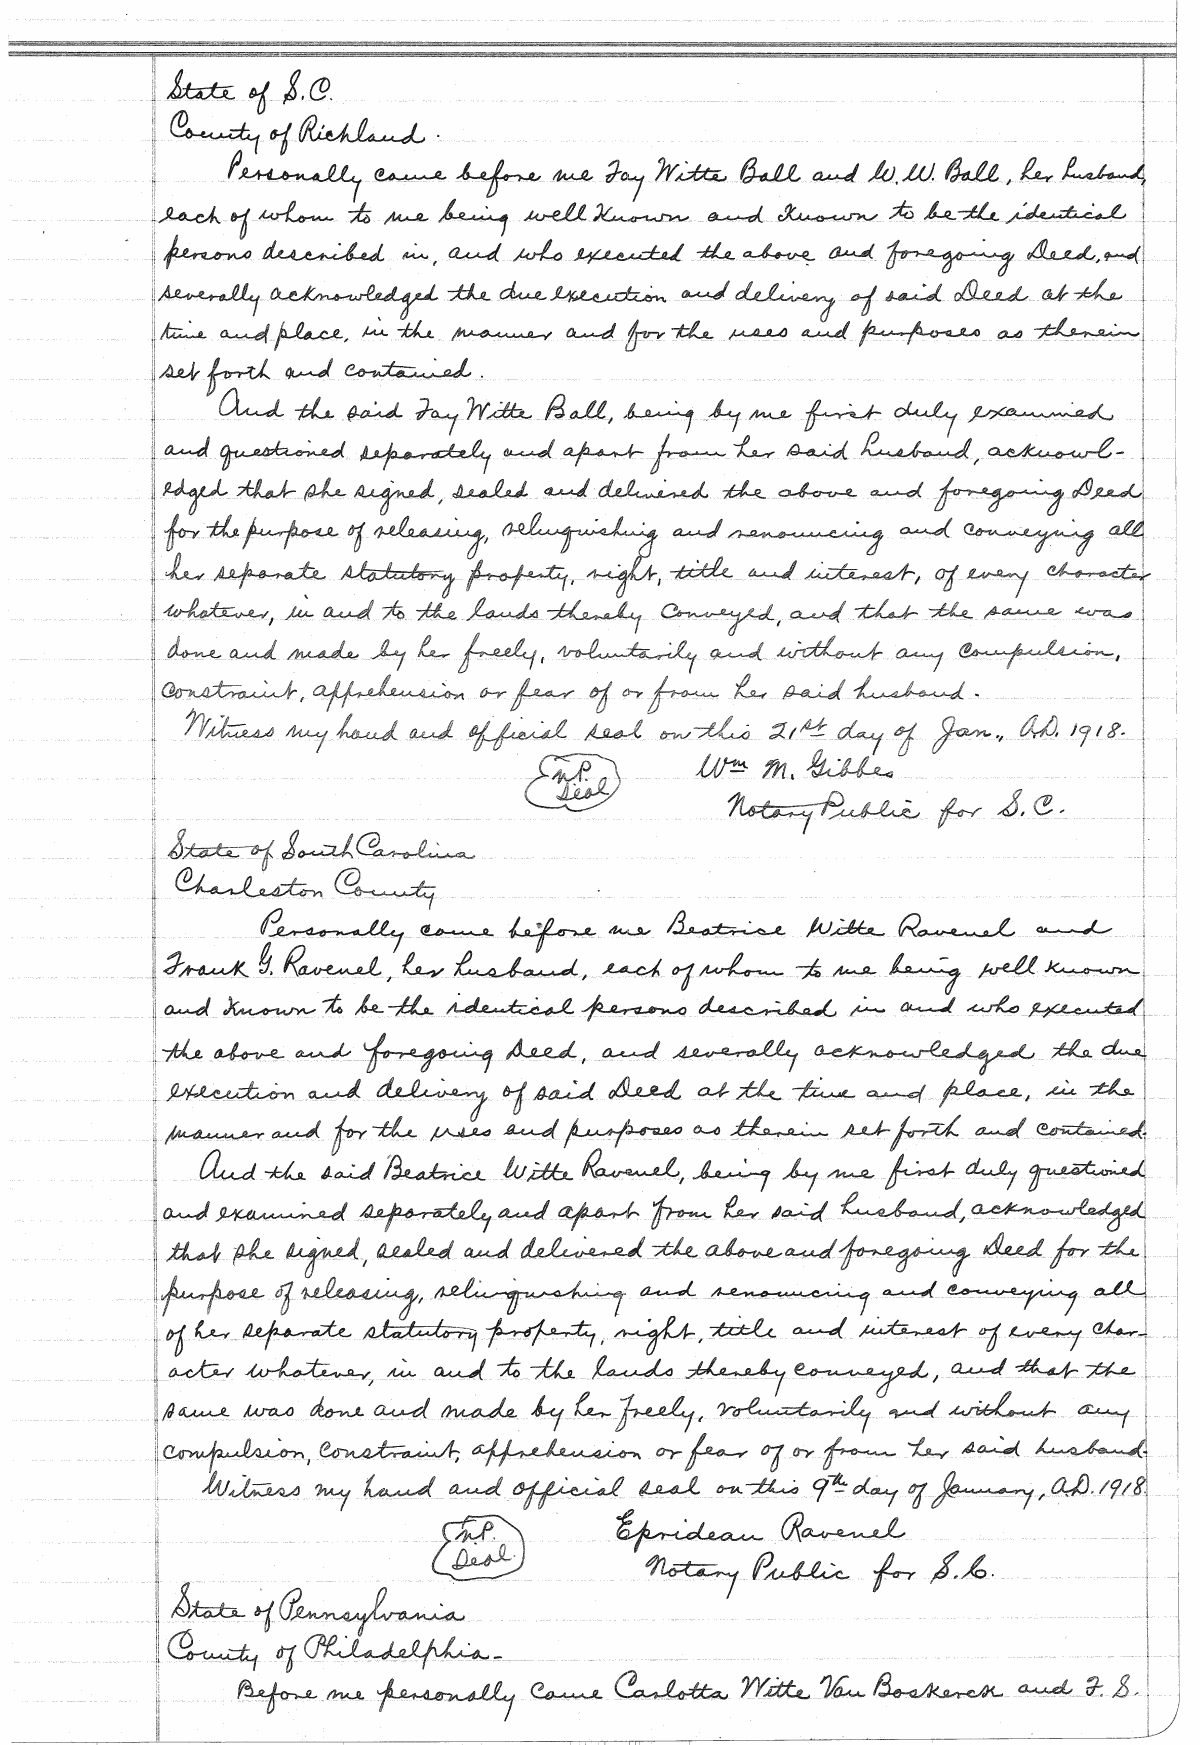 State of S.C.
County of Richland.
Personally came before me Fay Witte Ball and W. W. Ball, her husband,
each of whom to me being well Known and Known to be the identical
persons described in, and who executed the above and foregoing Deed, and
severally acknowledged the due execution and delivery of said Deed at the
time and place, in the manner and for the uses and purposes as therein
set forth and contained.
And the said Fay Witte Ball, being by me first duly examined
and questioned separately and apart from her said husband, acknowl-
edged that she signed, sealed and delivered the above and foregoing Deed
for the purpose of releasing, relinquishing and renouncing and conveying all
her separate statutory property, right, title and interest, of every character
whatever, in and to the lands thereby conveyed, and that the same was
done and made by her freely, voluntarily and without any compulsion,
constraint, apprehension or fear of or from her said husband.
Witness my hand and official seal on this 21st day of Jan., A.D. 1918.
N.P. Wm M. Gibbes
Seal
Notary Public for S.C.
State of South Carolina
Charleston County
Personally came before me Beatrice Witte Ravenel and
Frank G. Ravenel, her husband, each of whom to me being well known
and Known to be the identical persons described in and who executed
the above and foregoing Deed, and severally acknowledged the due
execution and delivery of said Deed at the time and place, in the
manner and for the uses and purposes as therein set forth and contained.
And the said Beatrice Witte Ravenel, being by me first duly questioned
and examined separately and apart from her said husband, acknowledged
that she signed, sealed and delivered the above and foregoing Deed for the
purpose of releasing, relinquishing and renouncing and conveying all
of her separate statutory property, right, title and interest of every char-
acter whatever, in and to the lands thereby conveyed, and that the
same was done and made by her freely, voluntarily and without any
compulsion, constraint, apprehension or fear of or from her said husband.
Witness my hand and official seal on this 9th day of January, A.D. 1918.
N.P. Eprideau Ravenel
Seal. Notary Public for S.C.
State of Pennsylvania
County of Philadelphia-
Before me personally came Carlotta Witte Van Boskerck and F. S.